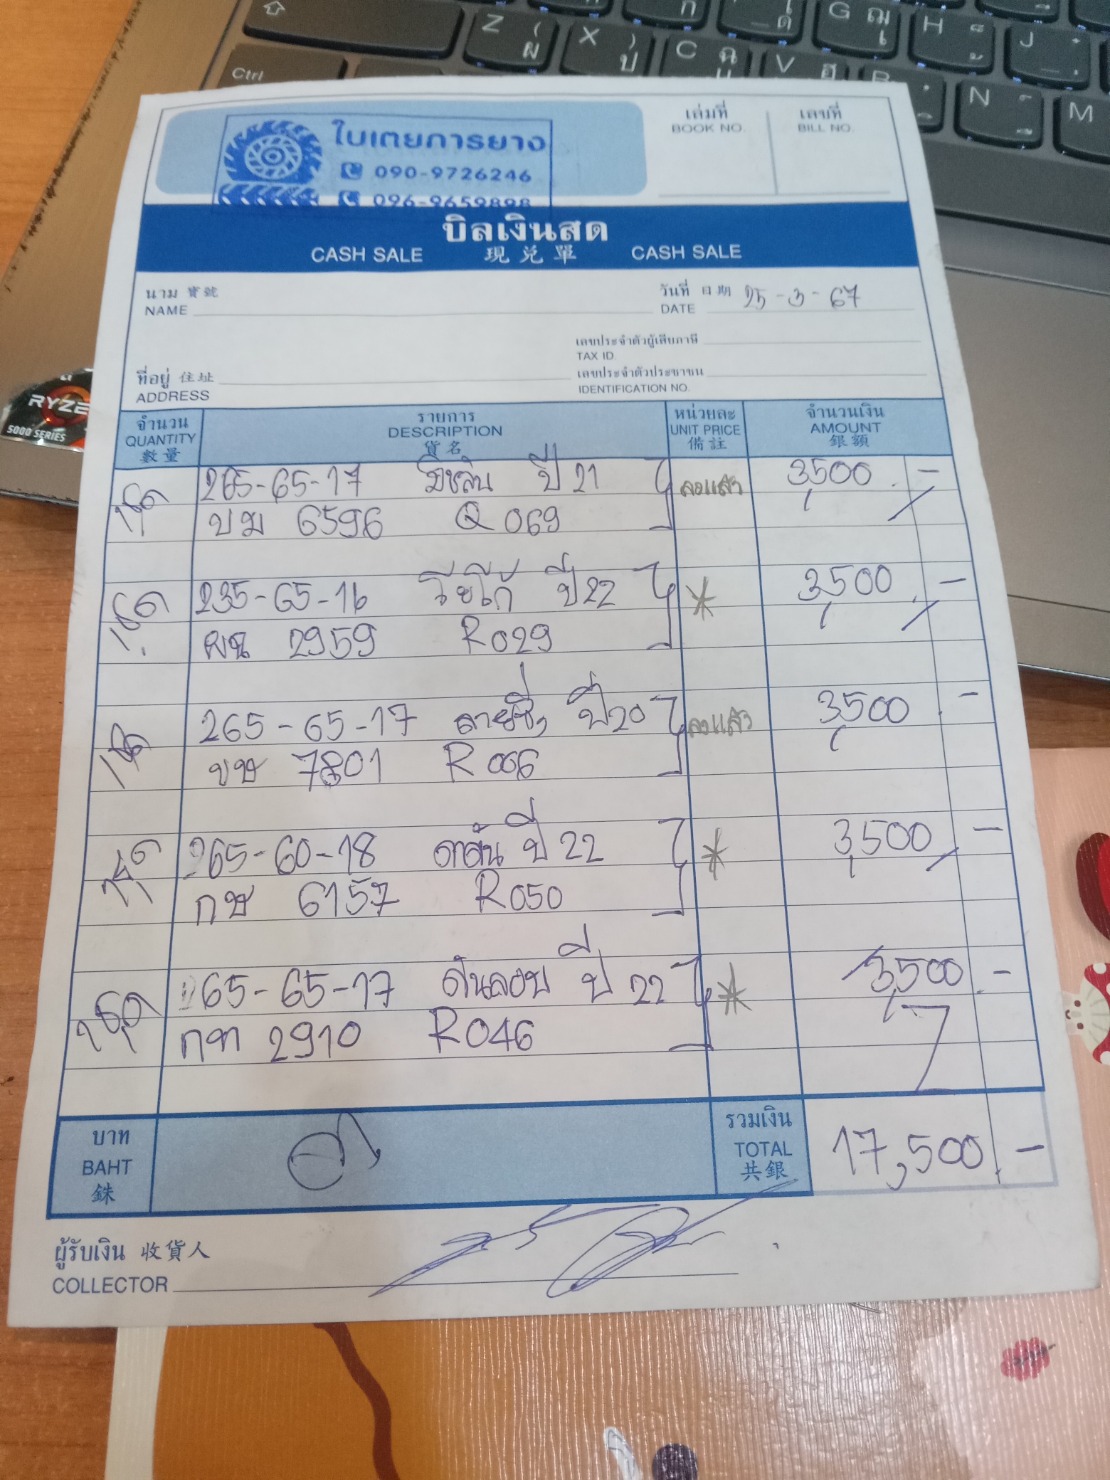 ใบเตยการยาง
090-9726246
096-9659898
เล่มที่
BOOK NO.
เลขที่
BILL NO.
บิลเงินสด
CASH SALE 現兌單 CASH SALE
นาม 寶號
NAME
วันที่ 日期 25-3-67
DATE
เลขประจำตัวผู้เสียภาษี
TAX ID.
ที่อยู่ 住址
ADDRESS
เลขประจำตัวประชาชน
IDENTIFICATION NO.
จำนวน รายการ หน่วยละ จำนวนเงิน
QUANTITY DESCRIPTION UNIT PRICE AMOUNT
數量 貨名 備註 銀額
1ชุด 265-65-17 มิชลิน ปี 21 ลงแล้ว 3,500 -
6596 Q069
1ชุด 235-65-16 ปี 22 * 3,500 -
ผฉ 2959 R029
1ชุด 265-65-17 ปี 20 ลงแล้ว 3,500 -
7801 R006
1ชุด 265-60-18 ปี 22 * 3,500 -
กษ 6157 R050
1ชุด 265-65-17 ดันลอป ปี 22 * 3,500 -
2910 R046
บาท
BAHT
銖
รวมเงิน
TOTAL
共銀
17,500 -
ผู้รับเงิน 收貨人
COLLECTOR
RYZE
5000 SERIES
Ctrl
Z
X
C
V
G
H
J
N
M